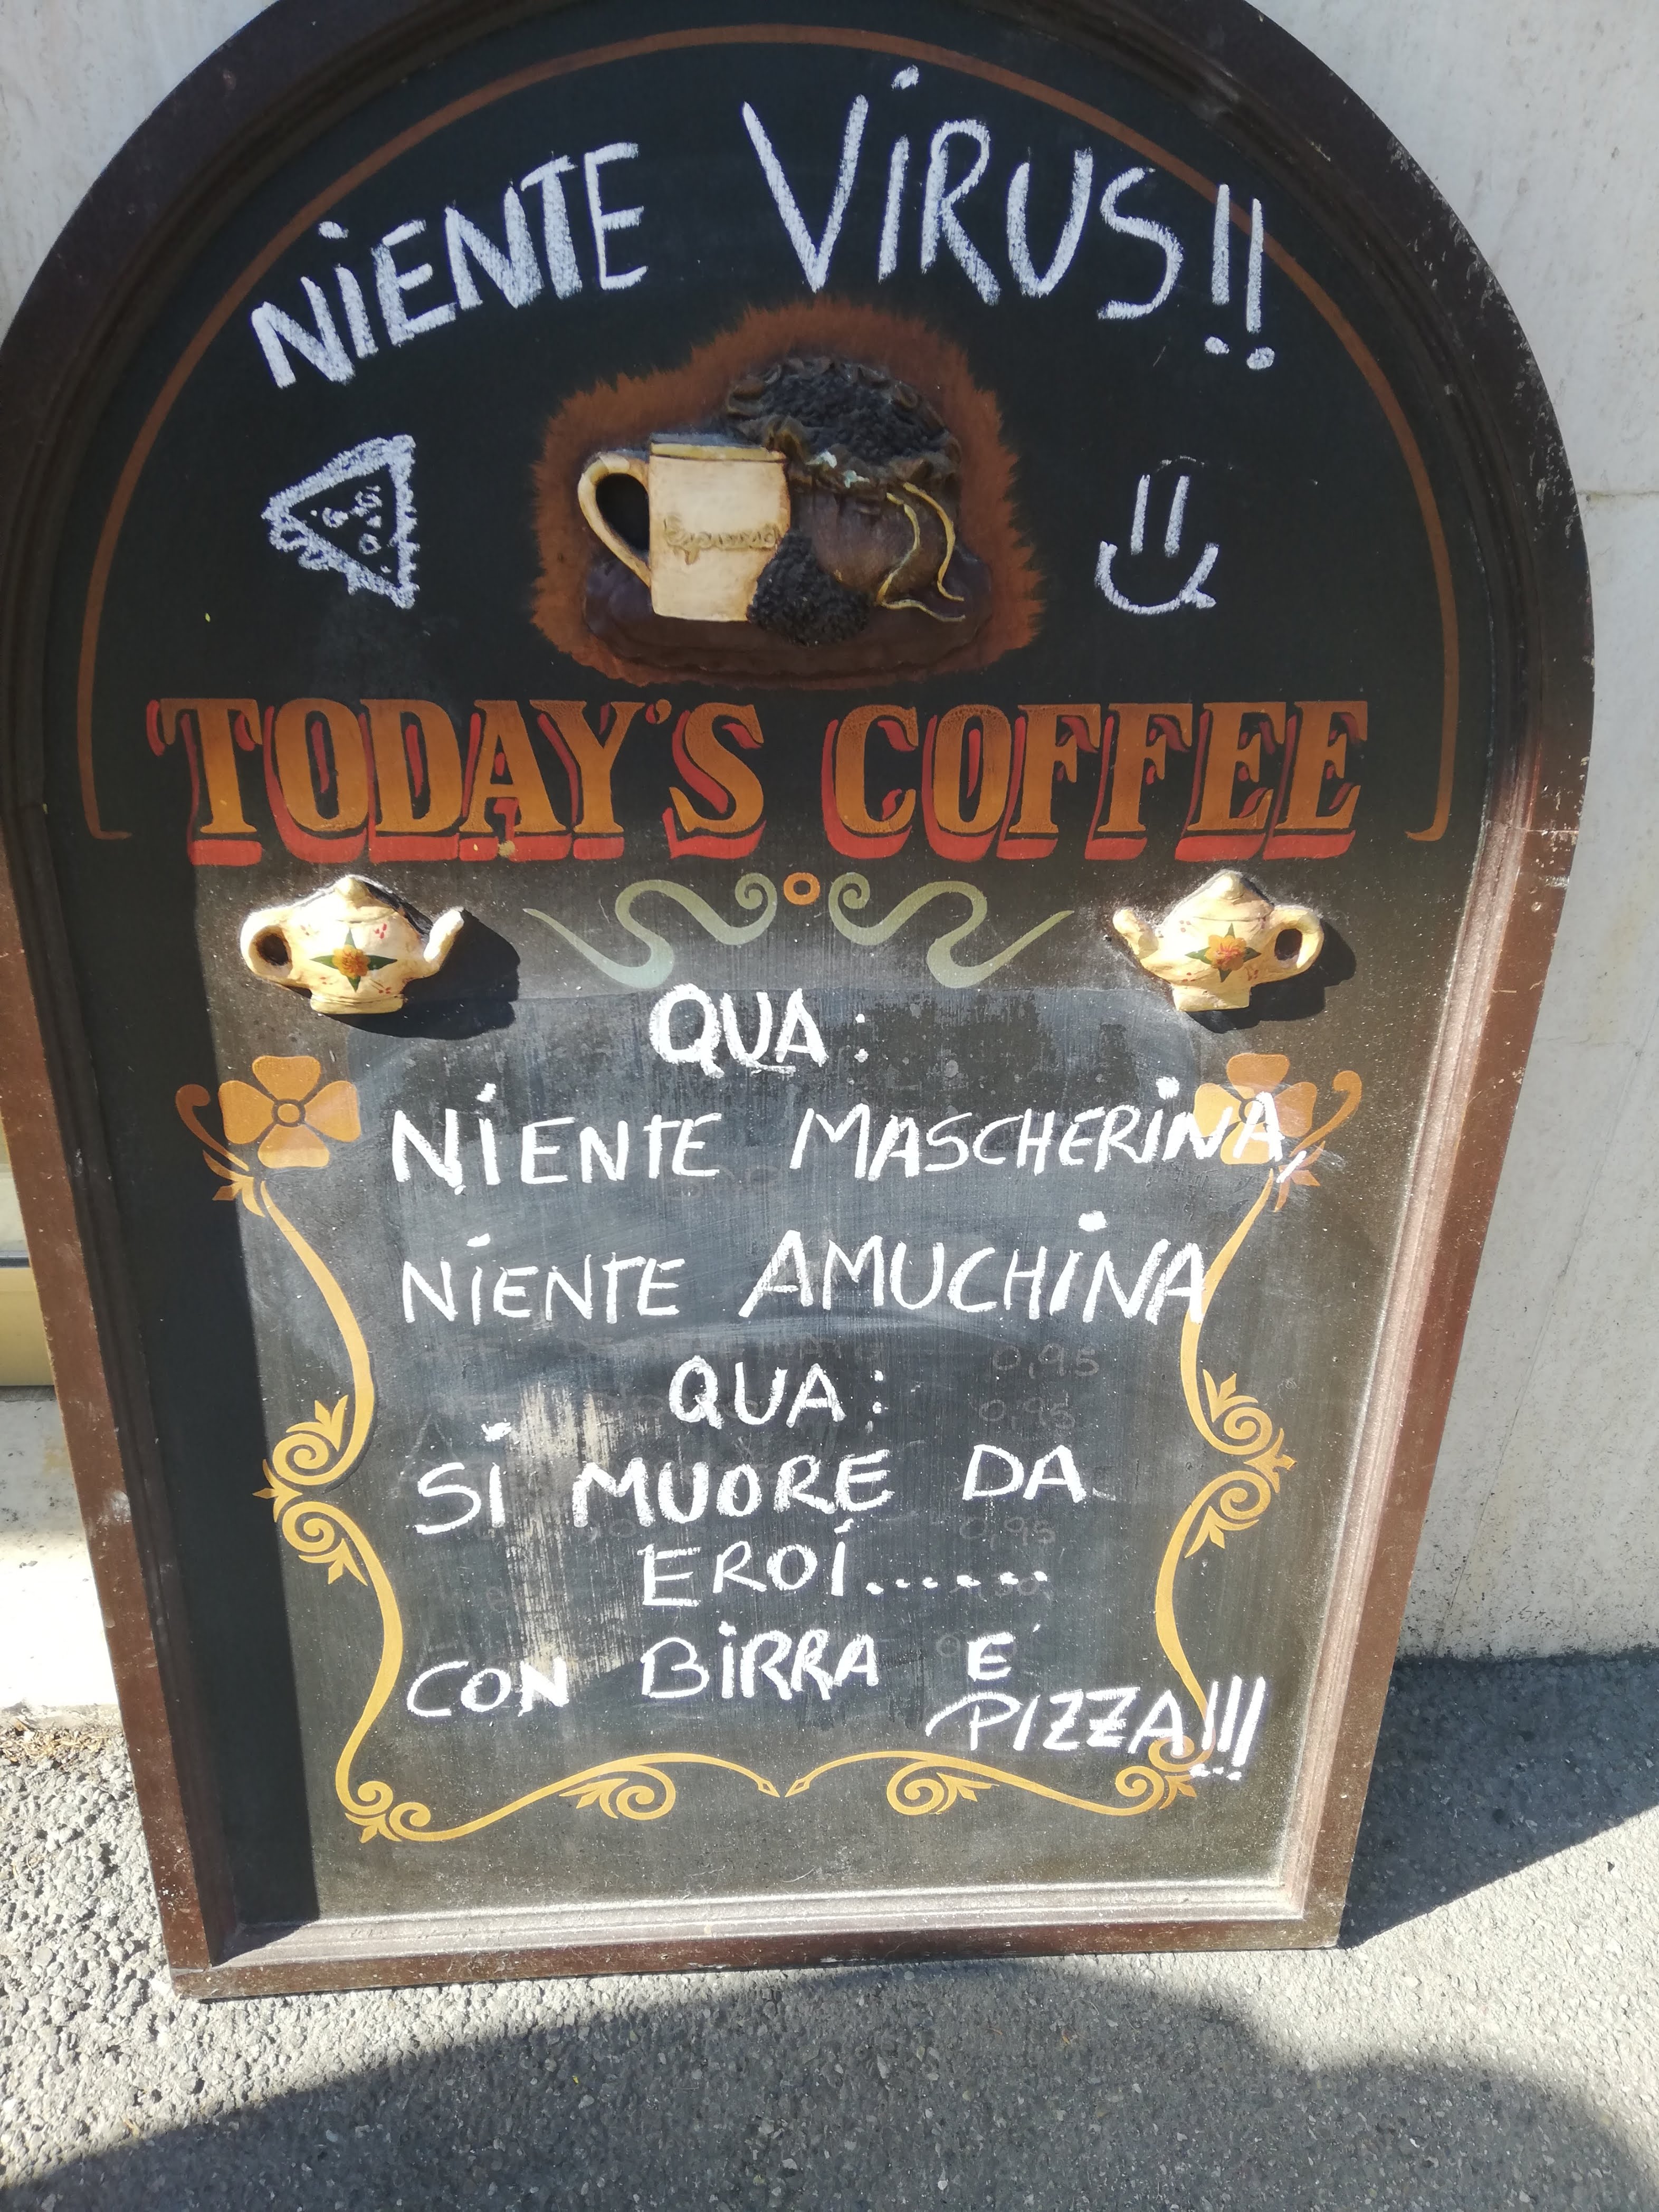 NIENTE VIRUS!!
TODAY'S COFFEE
QUA:
NIENTE MASCHERINA,
NIENTE AMUCHINA
QUA:
SI MUORE DA
EROI......
CON BIRRA E
PIZZA!!!
0,95
0,95
0,95